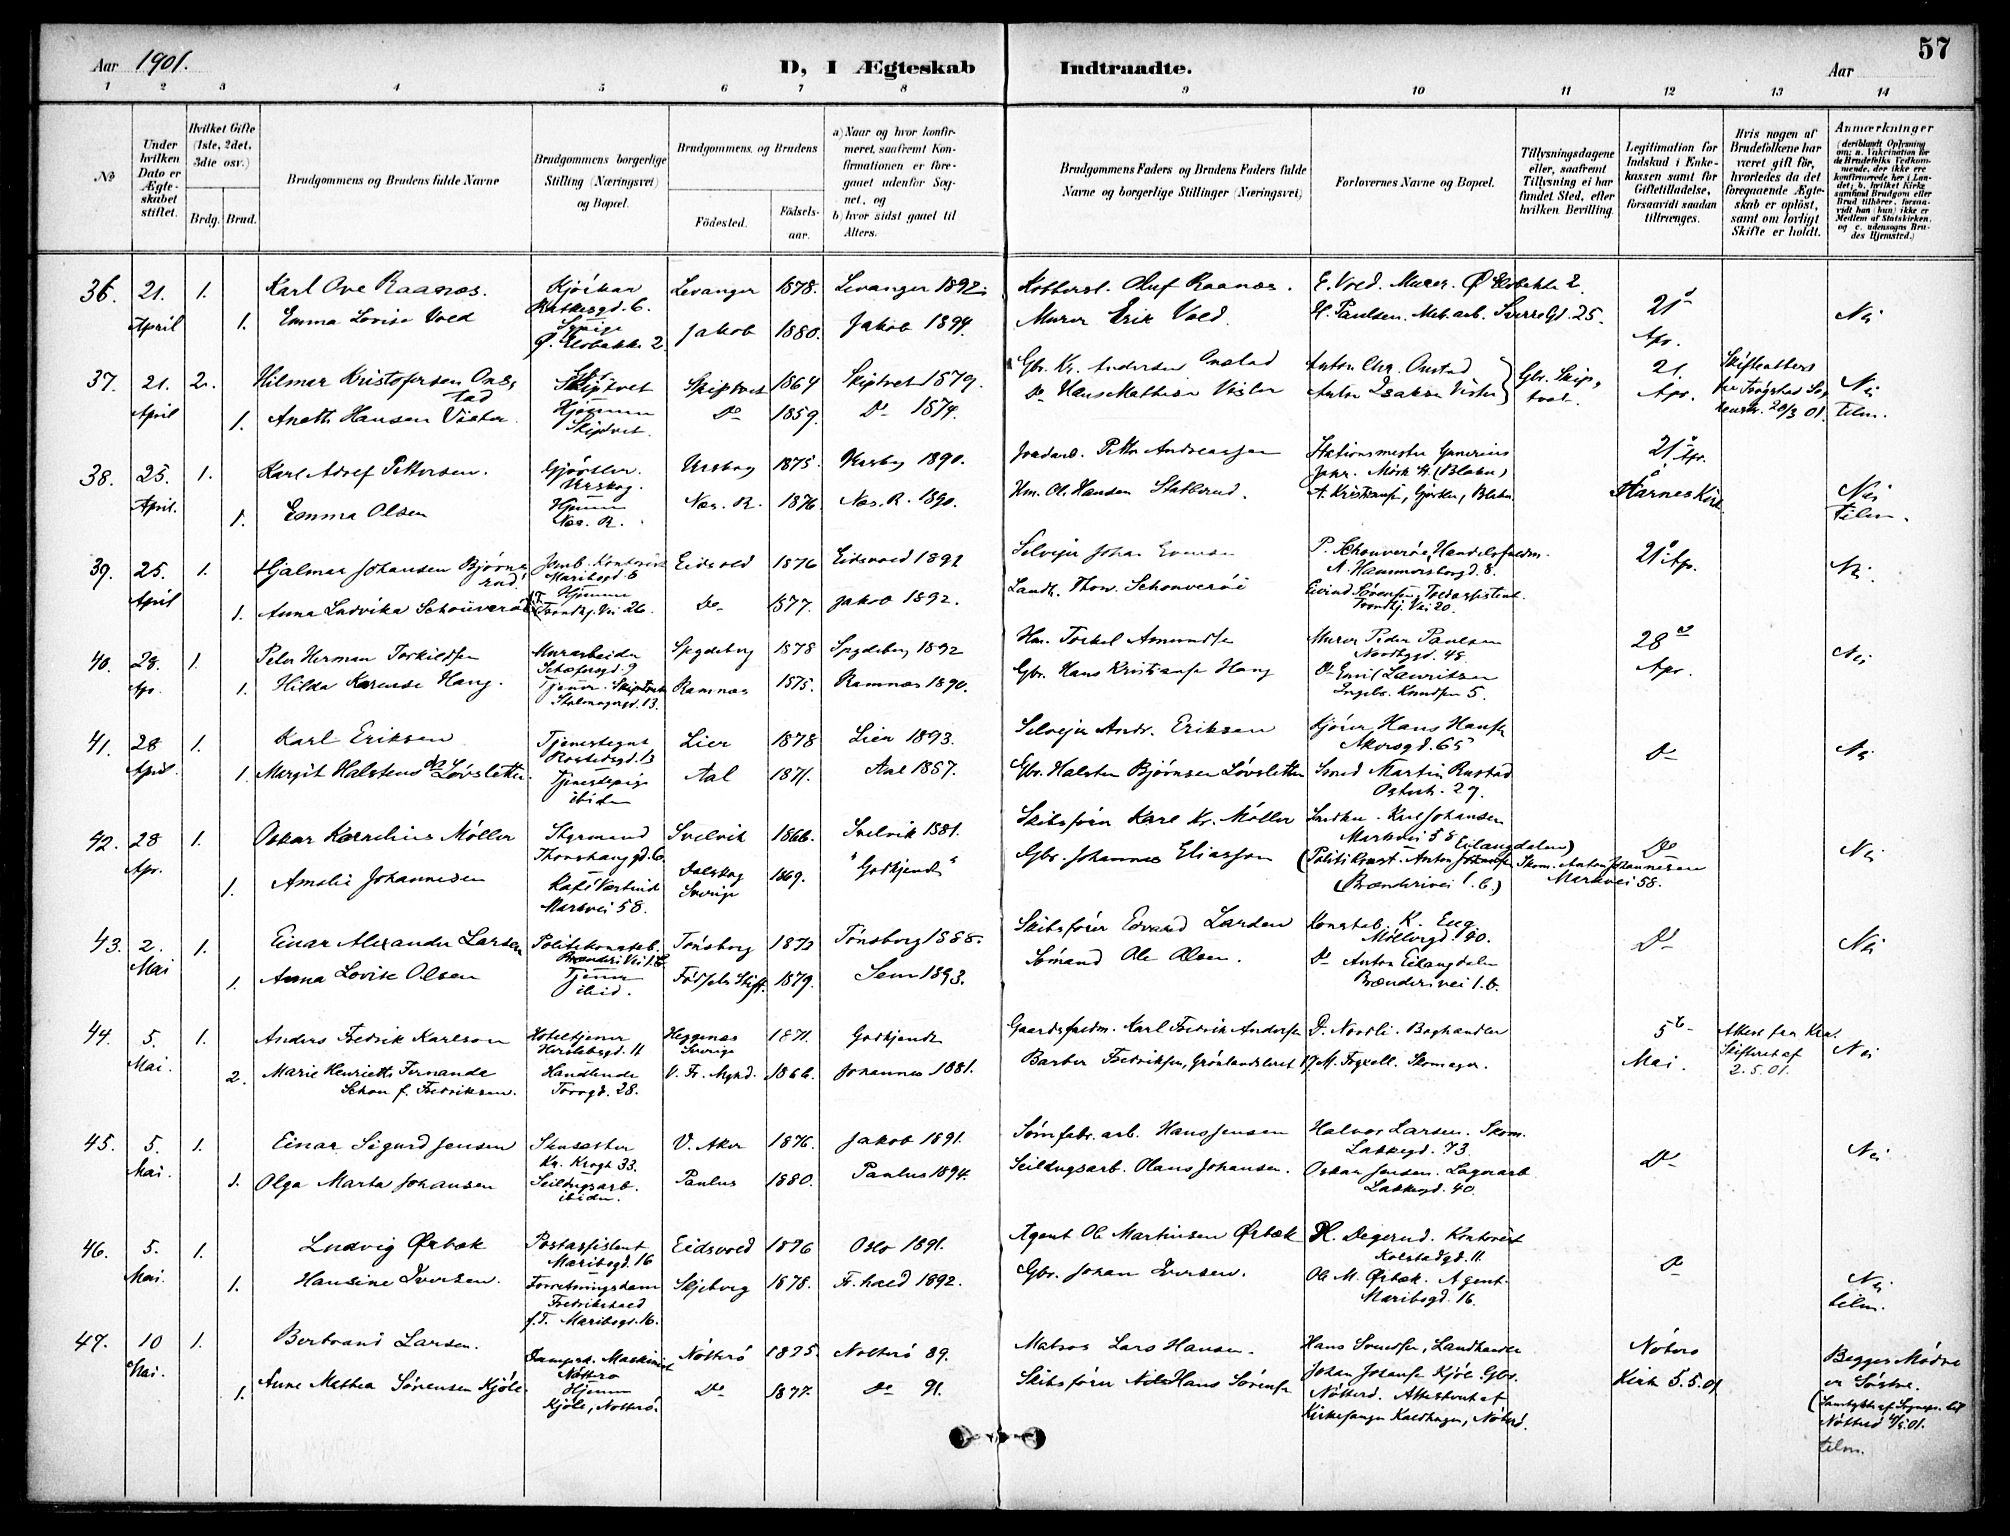 57
Aar 1901.
D, I Ægteskab Indtraadte.
Aar
1 2 3 4 5 6 7 8 9 10 11 12 13 14
No
Under hvilken Dato er Ægteskabet stiftet.
Hvilket Gifte (1ste, 2det, 3die osv.)
Brdg. Brud.
Brudgommens og Brudens fulde Navne
Brudgommens borgerlige Stilling (Næringsvei) og Bopæl.
Brudgommens og Brudens
Fødested.
Fødselsaar.
a) Naar og hvor konfirmeret, saafremt Konfirmationen er foregaaet udenfor Sognet, og
b) hvor sidst gaaet til Alters.
Brudgommens Faders og Brudens Faders fulde Navne og borgerlige Stillinger (Næringsvei)
Forlovernes Navne og Bopæl.
Tillysningsdagene eller, saafremt Tillysning ei har fundet Sted, efter hvilken Bevilling.
Legitimation for Indskud i Enkekassen samt for Giftetilladelse, forsaavidt saadan tiltrænges.
Hvis nogen af Brudefolkene har været gift før, hvorledes da det foregaaende Ægteskab er opløst, samt om lovligt Skifte er holdt.
Anmærkninger
36. 21. 1. Karl Ove Raanæs. Kjørkar Levanger 1878. Levanger 1892. Oluf Raanæs. E. Vold. Murer.
April 1. Emma Lovise Vold Jakob 1880. Jakob 1894. Murer Erik Vold. H. Paulsen. Mek. arb. Sverregd. 25. 21 Apr. Nei
37. 21. 2. Hilmar Kristofersen Onstad Skiptvet Skiptvet 1864 Skiptvet 1879. Gbr. Kr. Andersen Onstad Anton Chr. Onstad Gbr. Skiptvet. 21. Apr. Nei
April 1. Aneth Hansen Vister Hjemme Skiptvet. Do 1859. Do 1874. Do Hans Mathisen Vister Anton Isaksen Vister tilm.
38. 25. 1. Karl Adolf Pettersen. Gjørtler. Urskog. Urskog 1875. Urskog 1890. Petter Andreassen Stationsmester 21 Apr.
April. 1. Emma Olsen Hjemme Næs. R. Næs. R. 1876 Næs. R. 1890. Hm. Ol. Hansen A. Kristiansen, Gjørtler, Blaker Aarnes Kirke Nei tilm.
39. 25. 1. Hjalmar Johansen Bjørnerud Maribogd 6 Eidsvold 1876 Eidsvold 1892 Selveier Johan Evensen P. Schouverøe, Handelsfuldm. A. Hammersborgd. 8. 21 Apr. Nei.
April 1. Anna Ludvika Schouverøe Hjemme Trondhj. Vei 26. Do 1877. Jakob 1892. Landh. Thorv. Schouverøe Eivind Sørensen, Toldassistent. Trondhj. Vei 20.
40. 28. 1. Peter Herman Torkildsen Murarbeider Schæfersgd. 9 Spydeberg 1878 Spydeberg 1892 Hm. Torkel Amundsen Murer Peder Paulsen Nordbygd. 48. 28 Apr. Nei
Apr. 1. Hilda Karense Haug. Tjener. Skiptvet Stolmagergd. 13. Ramnæs 1875. Ramnæs 1890. Gbr. Hans Kristiansen Haug Do Emil Lauritzen Ingebr. Knudsen 5.
41. 28 1. Karl Eriksen Tjenestegut Rostedsgd. 13 Lier 1878 Lier 1893. Selveier Andr. Eriksen Kjører Hans Hansen Akersgd. 65 Do Nei
April. 1. Margit Halstensda. Løvsletten. Tjenestepige ibiden Aal 1871. Aal 1887. Gbr. Halsten Bjørnsen Løvsletten Smed Martin Rustad Osterh. 29.
42. 28 1. Oskar Kornelius Møller Styrmand Svelvik 1866. Svelvik 1881. Skibsfører Karl Kr. Møller Karl Johansen Markvei 58 Do Nei
Apr. 1. Amalie Johannesen Markvei 58. Dalskog Sverige 1869. "Godkjendt" Gbr. Johannes Eliasson (Politikonst. Anton Eilangdalen) (Brænderivei 1. b.) Skom. Anton Johannesen Markvei 58.
43. 2. 1. Einar Alexander Larsen Politikonstab. Brænderi Vei 1. b Tønsberg 1873 Tønsberg 1888. Skibsfører Edvard Larsen Konstab. K. Eng Møllergd. 40. Do Nei
Mai 1. Anna Lovise Olsen Tjener ibid. Fødsels Stift. 1879. Sem 1893. Sømand Ole Olsen. Do Anton Eilangdalen Brænderivei 1. b.
44. 5. 1. Anders Fredrik Karlson Hoteltjener Herslebsgd. 11 Heggenas Sverige 1871. Godkjendt Gaardsfuldm. Karl Fredrik Anderson D. Nordli. Boghandler 5te Mai. Attest fra Kra. Skifteret af 2.5.01. Nei
Mai. 2. Marie Henriette Fernanda Schou f. Fredriksen. Handlende Torvgd. 28. V. Fr. Mynd. 1866. Johannes 1881. Barber Fredriksen, Grønlandsleret 17 M. Fryxell. Skomager.
45. 5. 1. Einar Sigurd Jensen Skræder Kr. Krogh 33. V. Aker 1876. Jakob 1891. Sømfabr. arb. Hans Jensen Halvor Larsen. Skom. Lakkegd. 73. Do Nei
Mai. 1. Olga Marta Johansen Seildugsarb. ibiden. Paulus 1880. Paulus 1894. Seildugsarb. Olaus Johansen. Oskar Jensen. Lagerarb Lakkegd. 40.
46. 5. 1. Ludvig Ørbæk Postassistent Maribogd. 16 Eidsvold 1876 Oslo 1891. Agent Ol. Martinsen Ørbæk H. Degerud. Kontorist Kolstadgd. 11. Do
Mai. 1. Hansine Iversen. Forretningsdame Fredrikshald f. T. Maribogd. 16. Skjeberg 1878. Fr. hald 1892. Gbr. Johan Iversen. Ole M. Ørbæk. Agent. Maribogd. 16. Nei tilm.
47. 10 1. Bertrand Larsen. Dampsk. Maskinist Nøtterø Nøtterø 1875. Nøtterø 89. Matros Lars Hansen. Hans Svendsen, Landhandler Nøtterø
Mai. 1. Anne Mathea Sørensen Kjøle Hjemme Kjøle, Nøtterø. Do 1877. Do 91. Skibsfører Nils Hans Sørensen Johan Johansen Kjøle Gbr. Nøtterø. Attesteret af Kirkesanger Kaldhagen, Nøtterø. Kirke 5.5.01 Begges Mødre er Søstre. (Samtykke af Sognepr. til Nøtterø 4/5.01. tilm.